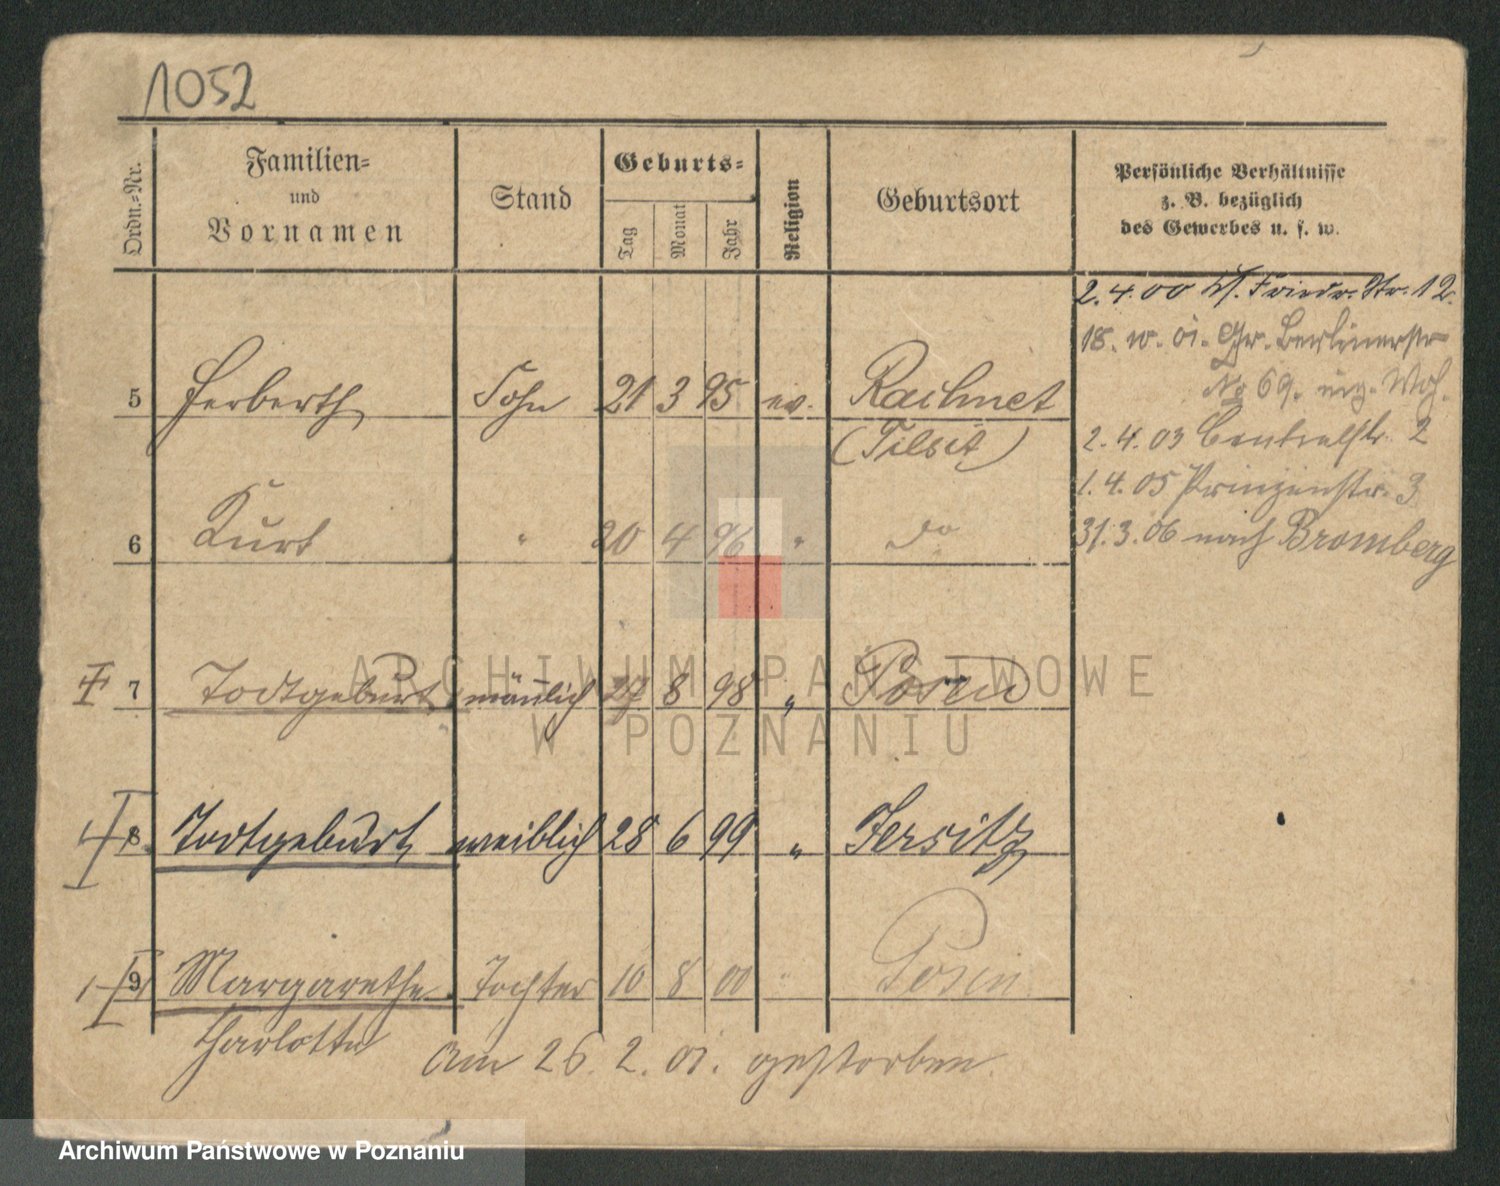 1052
Ordn.-Nr.
Familien-
und
Vornamen
Stand
Geburts-
Tag
Monat
Jahr
Religion
Geburtsort
Persönliche Verhältnisse
z. B. bezüglich
des Gewerbes u. s. w.
2.4.00 Friedr. Str. 12.
18. 10. 01. Gr. Berlinerstr
No 69. Woh.
5 Herberth Sohn 21 3 95 ev. Raehnet
(Tilsit)
2.4.03 Centralstr. 2
1.4.05 Prinzenstr. 3
6 Kurt " 20 4 96 " do
31.3.06 nach Bromberg
7 Todtgeburt männlich 27 8 98 " Posen
8 Todtgeburt weiblich 28 6 99 " Jersitz
9 Margarethe Tochter 10 8 00 " Posen
Charlotte
am 26. 2. 01. gestorben.
ARCHIWUM PAŃSTWOWE
W POZNANIU
Archiwum Państwowe w Poznaniu